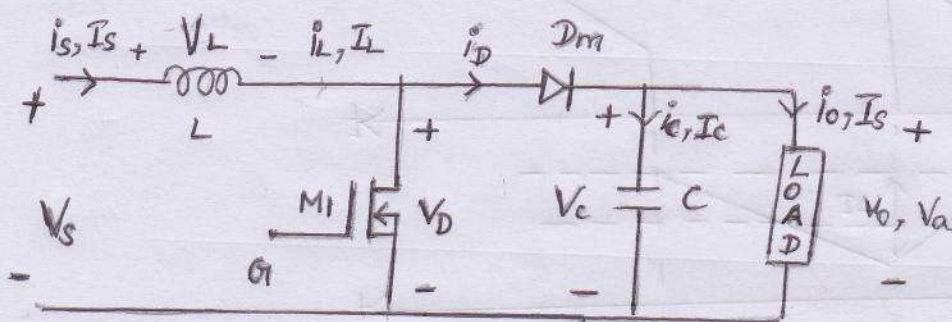 is, Is + VL - iL, IL iD Dm
+ L + + ic, Ic io, Is +
Vs M1 VD Vc C LOAD vo, Va
- G - - -